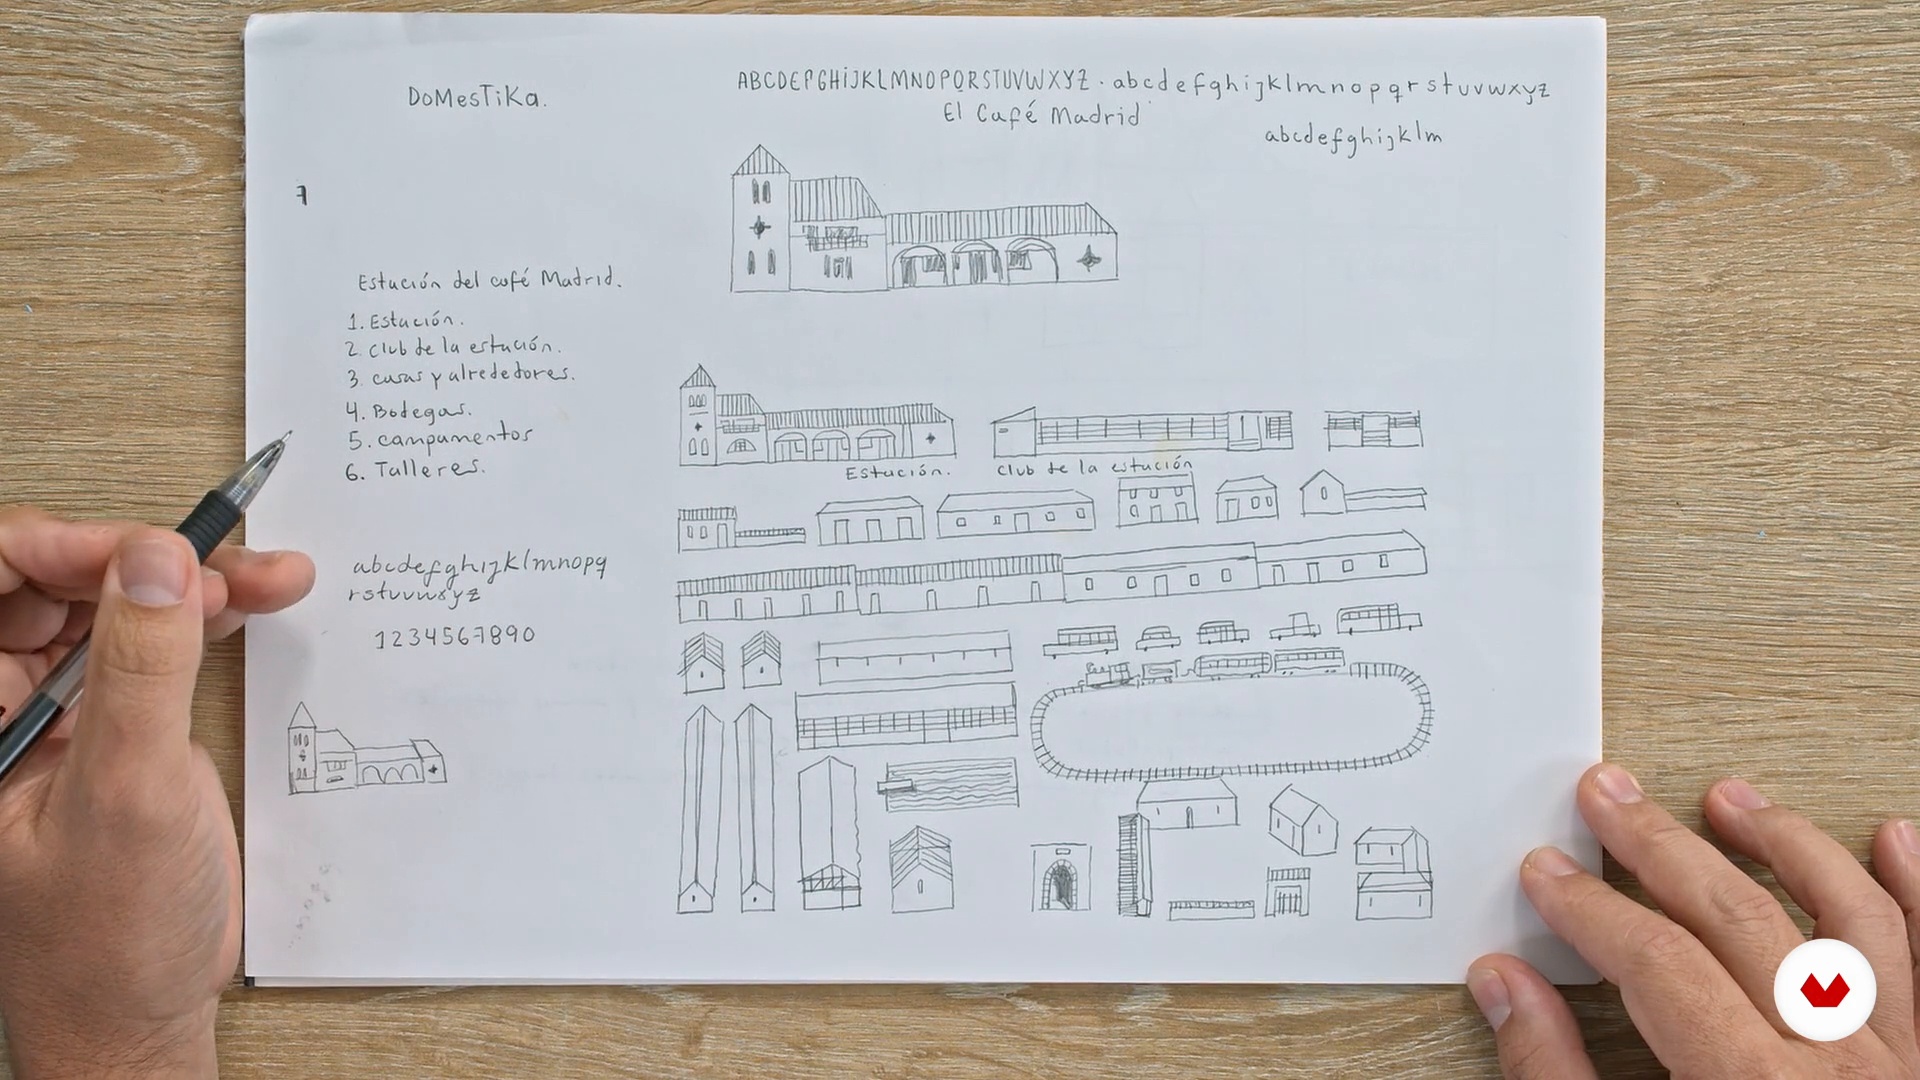 DoMesTiKa.
ABCDEFGHIJKLMNOPQRSTUVWXYZ · abcdefghijklmnopqrstuvwxyz
El Café Madrid
abcdefghijklm
7
Estación del café Madrid.
1. Estación.
2. club de la estación.
3. casas y alrededores.
4. Bodegas.
5. campamentos
6. Talleres.
Estación.
club de la estación
abcdefghijklmnopq
rstuvwxyz
1234567890